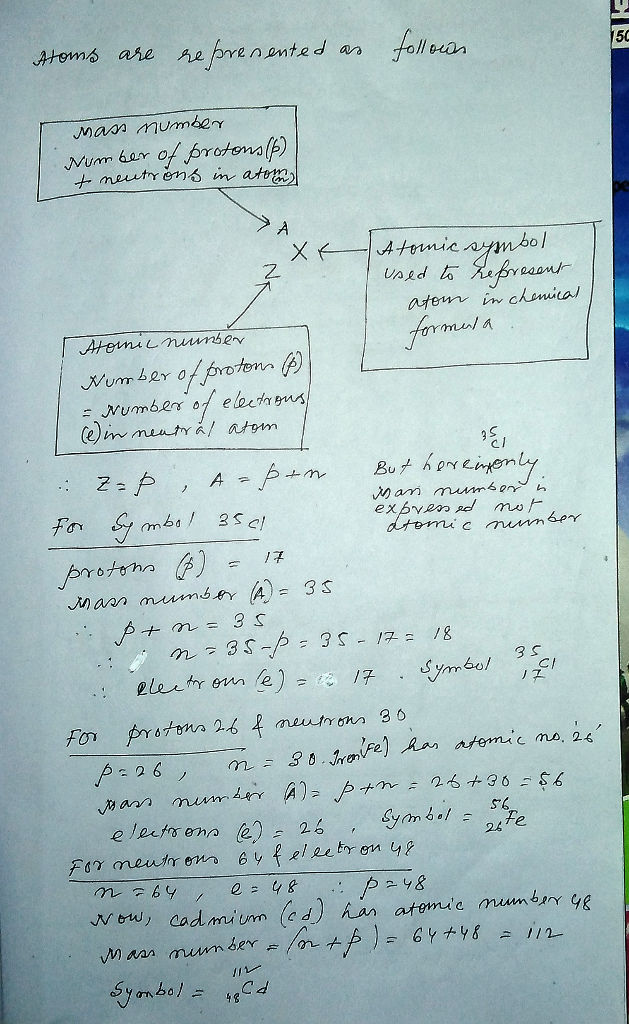 Atoms are represented as follows
Mass number
Number of protons (p)
+ neutrons in atom (n)
A
X
Z
Atomic symbol
used to represent
atom in chemical
formula
Atomic number
Number of protons (p)
= Number of electrons
(e) in neutral atom
∴ Z = p , A = p + n
35
Cl
But here only
mass number is
expressed not
atomic number
For Symbol 35 Cl
protons (p) = 17
Mass number (A) = 35
∴ p + n = 35
∴ n = 35 - p = 35 - 17 = 18
∴ Electrons (e) = 17 . Symbol 35 17 Cl
For protons 26 & neutrons 30
p = 26 , n = 30. Iron (Fe) has atomic no. '26'
Mass number (A) = p + n = 26 + 30 = 56
electrons (e) = 26 , Symbol = 56 26 Fe
For neutrons 64 & electron 48
n = 64 , e = 48 ∴ p = 48
Now, cadmium (cd) has atomic number 48
Mass number = (n + p) = 64 + 48 = 112
Symbol = 112 48 Cd